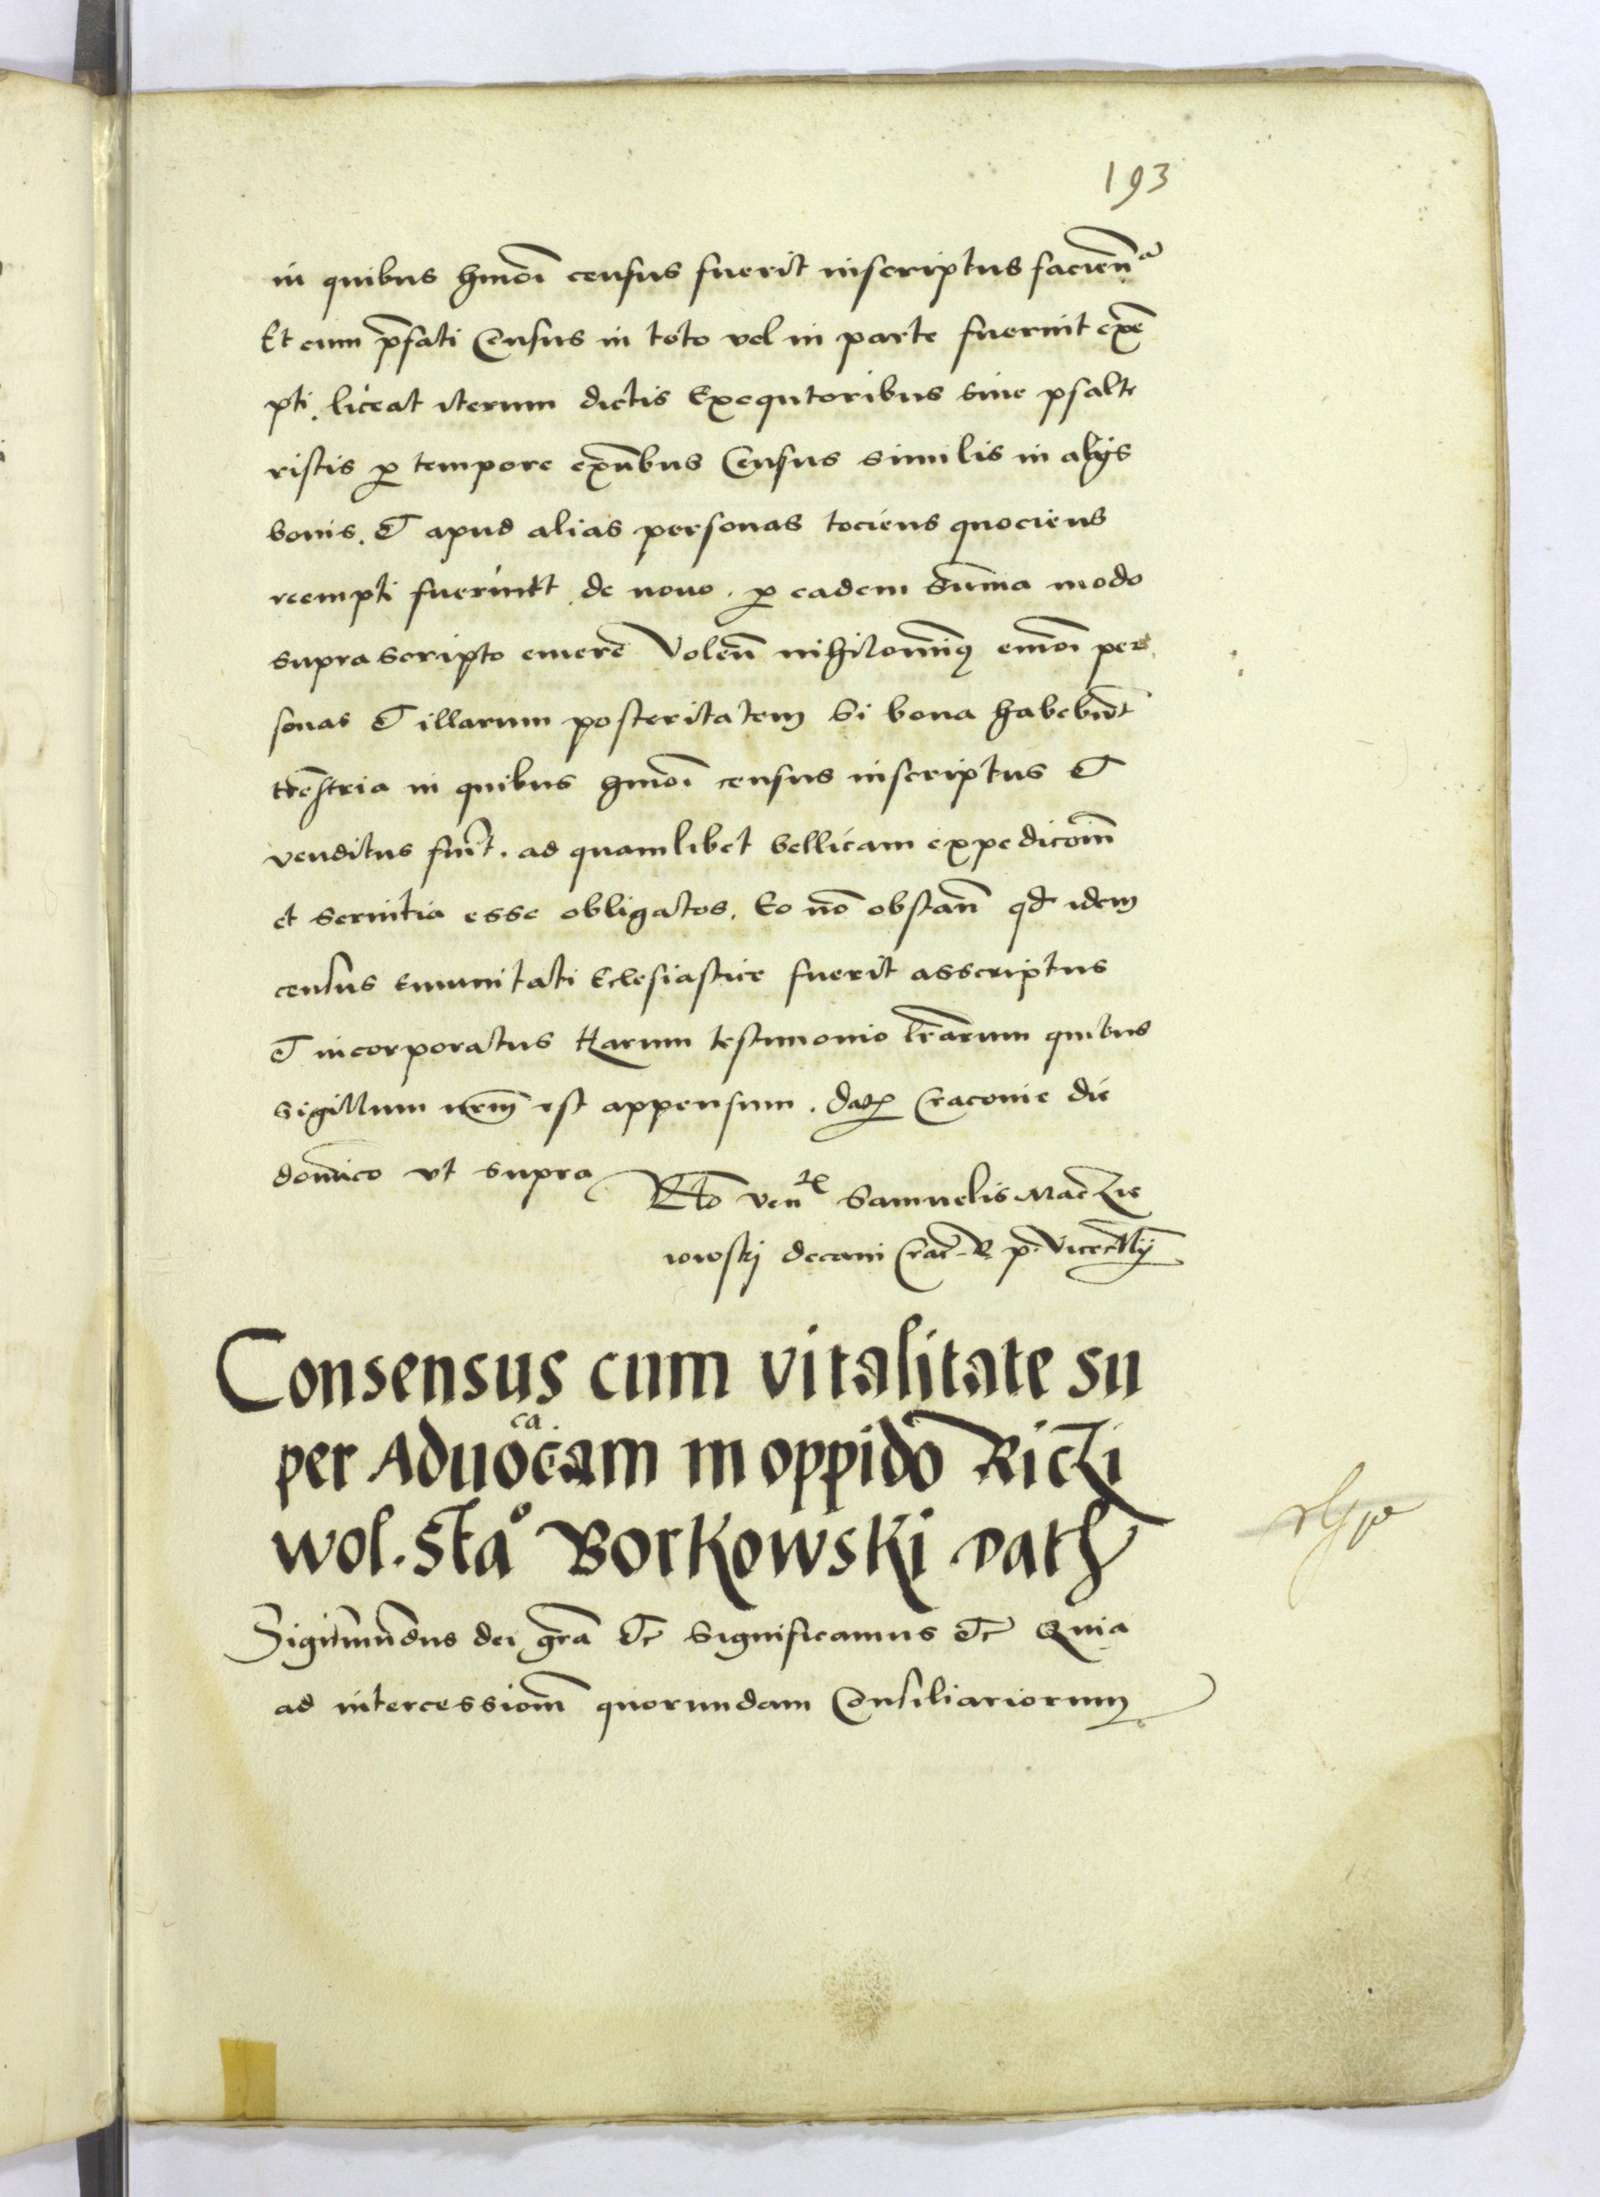 193
in quibus hmoi census fuerit inscriptus facien̄
Et cum p̄fati Census in toto vel in parte fuerint exe
pti. liceat iterum dictis Exequtoribus siue psalte
ristis p tempore exn̄bus Census similis in alijs
bonis. Et apud alias personas tociens quociens
reempti fuerintt de nouo. p eadem sum̄a modo
supra scripto emere Volen̄ nihilomin9 em̄oi per
sonas Et illarum posteritatem Si bona habebūt
trēstria in quibus hmoi census inscriptus Et
venditus fuīt. ad quamlibet bellicam expedicoīm
et seruitia esse obligatos. Eo nō obstan̄ qd idem
census Emunitati Eclesiastice fuerit asscriptus
Et incorporatus Harum testimonio lrārum quibus
sigillum nrm̄ est appensum. Dat Cracouie die
domīco vt supra
Rto ven Samuelis Maczie
iowskj decani Crac R p Vicecancellarij
Consensus cum vitalitate su
per Aduocacam in oppido Riczi
wol. Sta° Borkowski Dat
Sigismūdus dei grā Etc Significamus Etc Quia
ad intercessiom̄ quorundam Consiliariorum